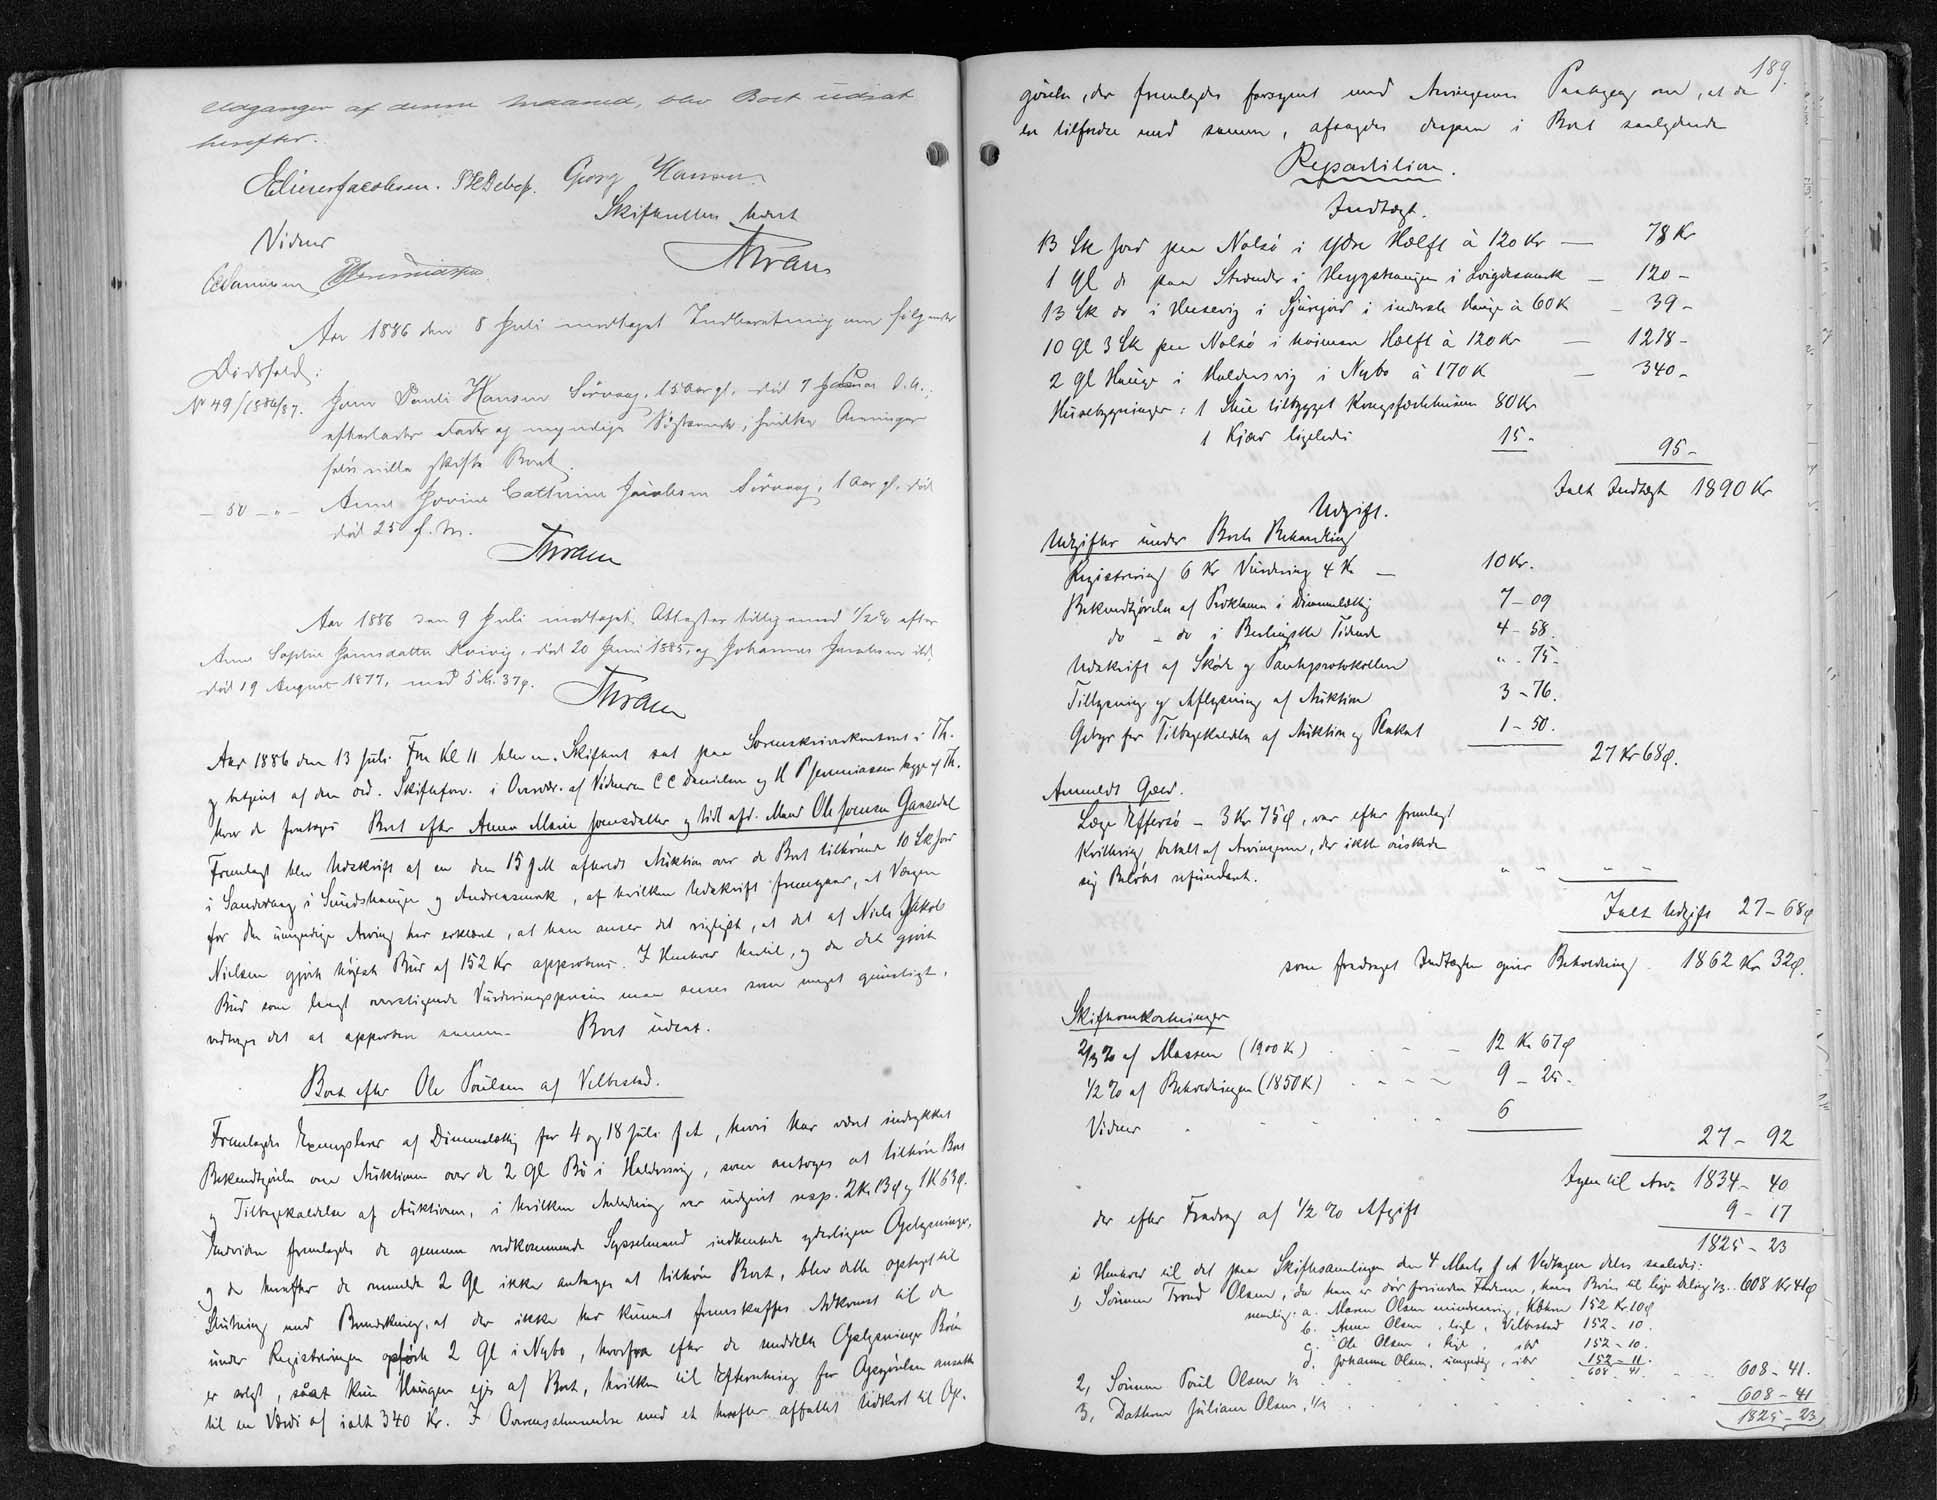 Udgangen af denne Maaned, blev Boet udsat
herefter.
Elieser Jacobsen. Georg Hansen
Skifteretten hævet
Vidner
CCDanielsen
Thran
Aar 1886 den 8 Juli modtaget Indberetning om følgende
Dødsfald:
No 49/1886/87. Hansen Sørvaag, 15 Aar gl. død 7
efterlader Fader og myndige Søskende, hvilke Arvinger
selv ville skifte Boet.
- 50 - " - Anne Cathrine Jacobsen Sørvaag, 1 Aar gl. død
død 25 f. M.
Thran
Aar 1886 den 9 Juli modtaget Attester tilligemed 1/2 % efter
Anne Sophie Joensdatter Kvivig, død 20 Juni 1885, og Johannes Jacobsen ibd.
død 19 August 1877, med 5 Kr. 37 ø.
Thran
Aar 1886 den 13 Juli Fm Kl 11 blev en Skifteret sat paa Sorenskriverkontoret i Th.
og betjent af den ord. Skifteforv. i Overvær. af Vidnerne C C Danielsen og H P Jeremiassen begge af Th.
hvor da foretoges Boet efter Anne Marie Joensdatter og tidl afd. Mand Ole Joensen Gansedal
Fremlagt blev Udskrift af en den 15 f M afholdt Auktion over de Boet tilhørende 10 Sk Jord
i Sandevaag i Sundshauge og Andreasmark, af hvilken Udskrift fremgaar, at Værgen
for den umyndige Arving har erklæret, at han anser det rigtigst, at det af Niels Jakob
Nielsen gjorte højeste Bud af 152 Kr approberes. I Henhold hertil, og da det gjorte
Bud som langt overstigende Vurderingsprisen maa anses som meget gunstigt,
vedtoges det at approbere samme. Boet udsat.
Boet efter Ole Poulsen af Velbestad.
Fremlagdes Exemplarer af Dimmalætting for 4 og 18 Juli f A, hvori har været indrykket
Bekendtgørelse om Auktionen over de 2 Gl Bø i Haldersvig, som antoges at tilhøre Boet
og Tilbagekaldelse af Auktionen, i hvilken Anledning var udgivet resp. 2 Kr 13 ø og 1 K 63 ø.
Endvidere fremlagdes de gennem vedkommende Sysselmand indhentede yderligere Oplysninger,
og da herefter de ommeldte 2 Gl ikke antages at tilhøre Boet, blev dette optaget til
Slutning med Bemærkning, at der ikke har kunnet fremskaffes Adkomst til de
under Registreringen opførte 2 Gl i Nybo, hvorfra efter de meddelte Oplysninger Bøen
er solgt, saa at kun Haugen ejes af Boet, hvilken til Efterretning for Opgørelsen ansættes
til en Værdi af ialt 340 Kr. I Overensstemmelse med et herefter affattet Udkast til Op-
189.
gørelse, der fremlagdes forsynet med Arvingernes Paategning om, at de
ere tilfredse med samme, afsagdes derpaa i Boet saalydende
Repartition.
Indtægt.
13 Sk Jord paa Nolsø i ydre Hælft à 120 Kr — 78 Kr
1 Gl do paa Strænder i Heygshaugen i — 120 -
13 Sk do i Husevig i i inderste Hauge à 60 K — 39 -
10 Gl 3 Sk paa Nolsø i heimare Hælft à 120 Kr — 1218 -
2 Gl Hauge i Haldersvig i Nybo à 170 K — 340 -
Husebygninger: 1 Stue tilbygget Kongsfæstehusene 80 Kr
1 Kjær ligeledes 15 - 95 -
Ialt Indtægt 1890 Kr
Udgift.
Udgifter under Boets Behandling
Registrering 6 Kr Vurdering 4 Kr — 10 Kr.
Bekendtgørelse af Proklama i Dimmalætting 7 - 09
do - do i Berlingske Tidende 4 - 58.
Udskrift af Skøde og Panteprotokollen " - 75 -
Tillysning og Aflysning af Auktion 3 - 76.
Gebyr for Tilbagekaldelse af Auktion og Plakat 1 - 50.
27 Kr 68 ø.
Anmeldt Gæld.
Læge Effersø - 3 Kr 75 ø, var efter fremlagt
Kvittering betalt af Arvingerne, der ikke ønskede
sig Beløbet refunderet. " " — " —
Ialt Udgift 27 - 68 ø
som fradraget Indtægten giver Beholdning 1862 Kr 32 ø.
Skifteomkostninger
2/3 % af Massen (1900 K) 12 Kr 67 ø
1/2 % af Beholdningen (1850 K) 9 - 25 -
Vidner 6
27 - 92
Igen til Arv. 1834 - 40
der efter Fradrag af 1/2 % Afgift 9 - 17
1825 - 23
i Henhold til det paa Skiftesamlingen den 4 Marts f A Vedtagne deles saaledes:
1, Sønnen Trond Olsen, da han er død forinden Faderen, hans Børn til lige Deling 1/3 .. 608 Kr 41 ø
nemlig: a. Maren Olsen mindreaarig, Kbhvn 152 Kr 10 ø
b. Anne Olsen, ligl, Velbestad 152 - 10.
c. Ole Olsen, ligl, ibd 152 - 10.
d. Johanne Olsen, umyndig, ibd 152 - 11.
608 - 41.
2, Sønnen Poul Olsen 1/3 608 - 41.
3, Datteren Juliane Olsen, 1/3 608 - 41
1825 - 23